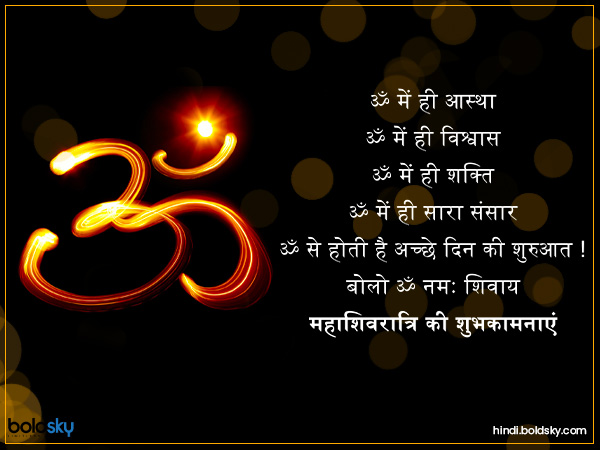 ॐ में ही आस्था
ॐ में ही विश्वास
ॐ में ही शक्ति
ॐ में ही सारा संसार
ॐ से होती है अच्छे दिन की शुरुआत !
बोलो ॐ नमः शिवाय
महाशिवरात्रि की शुभकामनाएं
boldsky
hindi.boldsky.com